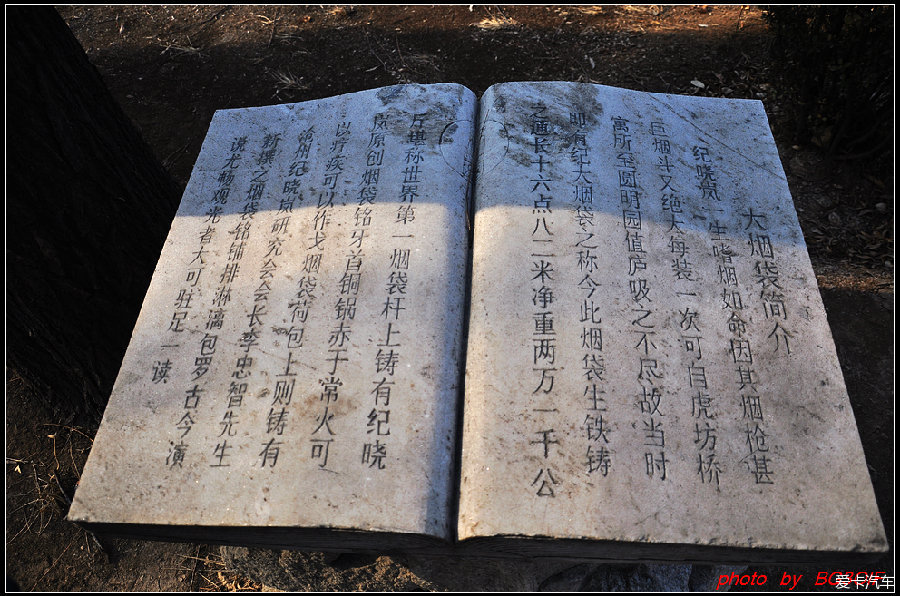 大烟袋简介
纪晓岚一生嗜烟如命因其烟枪甚
巨烟斗又绝大每装一次可自虎坊桥
寓所至圆明园值庐吸之不尽故当时
即有纪大烟袋之称今此烟袋生铁铸
之通长十六点八二米净重两万一千公
斤堪称世界第一烟袋杆上铸有纪晓
岚原创烟袋铭牙首铜锅赤于常火可
以疗疾可以作戈烟袋荷包上则铸有
沧州纪晓岚研究会会长李忠智先生
新撰之烟袋铭铺排淋漓包罗古今演
说尤畅观光者大可驻足一读
photo by
爱卡汽车